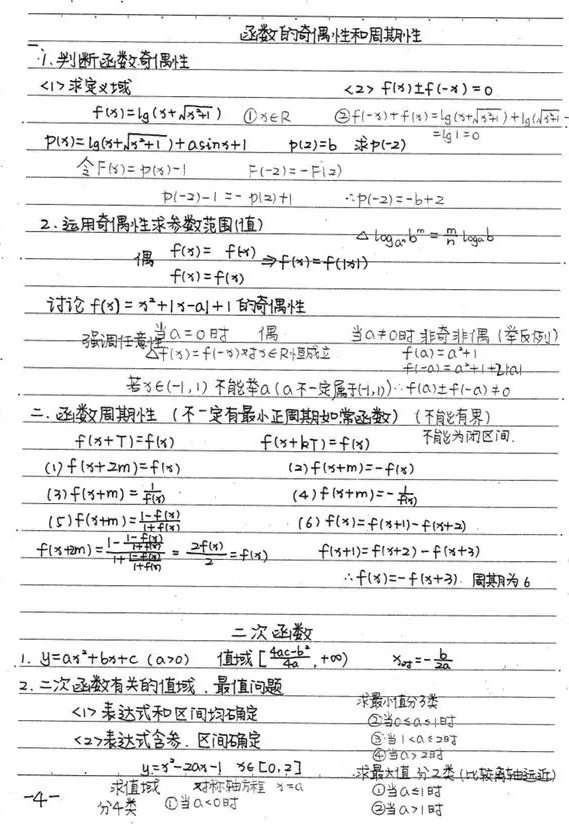 函数的奇偶性和周期性
1.判断函数奇偶性
<1>求定义域 <2> f(x)±f(-x)=0
f(x)=lg(x+√x²+1) ①x∈R ②f(-x)+f(x)=lg(x+√x²+1)+lg(√x²+1-
=lg1=0
p(x)=lg(x+√x²+1)+asinx+1 p(2)=b 求p(-2)
令F(x)=p(x)-1 F(-2)=-F(2)
p(-2)-1=-p(2)+1 ∴p(-2)=-b+2
2.运用奇偶性求参数范围(值) △log_{aⁿ}b^m=m/n log_a b
偶 f(x)=f(-x) ⇒f(x)=f(|x|)
f(x)=f(x)
讨论f(x)=x²+|x-a|+1的奇偶性
强调任意性 当a=0时 偶 当a≠0时 非奇非偶(举反例)
△f(x)=f(-x)对x∈R恒成立 f(a)=a²+1
f(-a)=a²+1+2|a|
若x∈(-1,1) 不能举a(a不一定属于(-1,1)) ∴f(a)±f(-a)≠0
二.函数周期性(不一定有最小正周期如常函数)(不能有界)
f(x+T)=f(x) f(x+kT)=f(x) 不能为闭区间.
(1) f(x+2m)=f(x) (2) f(x+m)=-f(x)
(3) f(x+m)=1/f(x) (4) f(x+m)=-1/f(x)
(5) f(x+m)=1-f(x)/1+f(x) (6) f(x)=f(x+1)-f(x+2)
f(x+2m)=(1-(1-f(x))/(1+f(x)))/(1+(1-f(x))/(1+f(x)))=2f(x)/2=f(x) f(x+1)=f(x+2)-f(x+3)
∴f(x)=-f(x+3) 周期为6
二次函数
1. y=ax²+bx+c (a>0) 值域[4ac-b²/4a,+∞) x对=-b/2a
2.二次函数有关的值域、最值问题
<1>表达式和区间均确定
<2>表达式含参、区间确定
y=x²-2ax-1 x∈[0,2]
求值域 对称轴方程 x=a
分4类 ①当a<0时
求最小值分3类
②当0≤a≤1时
③当1<a≤2时
④当a>2时
求最大值 分2类(比较离轴远近)
①当a≤1时
②当a>1时
-4-